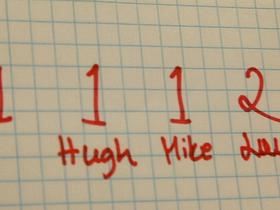 1 1 1 2
Hugh Mike